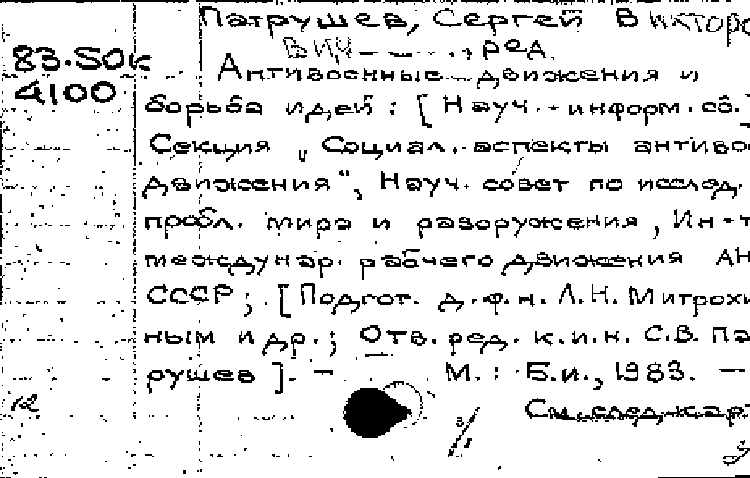 Патрушев, Сергей Викторо
вич, ред.
83.50к
4100
Антивоенные движения и
борьба идей : [Науч.-информ. сб.]
Секция „Социал. аспекты антиво
движения", Науч. совет по исслед.
пробл. мира и разоружения, Ин-т
междунар. рабочего движения АН
СССР ; [Подгот. д.ф.н. Л.Н. Митрохи
ным и др.; Отв. ред. к.и.н. С.В. Па
рушев]. - М. : Б.и., 1983. —
См. след. кар